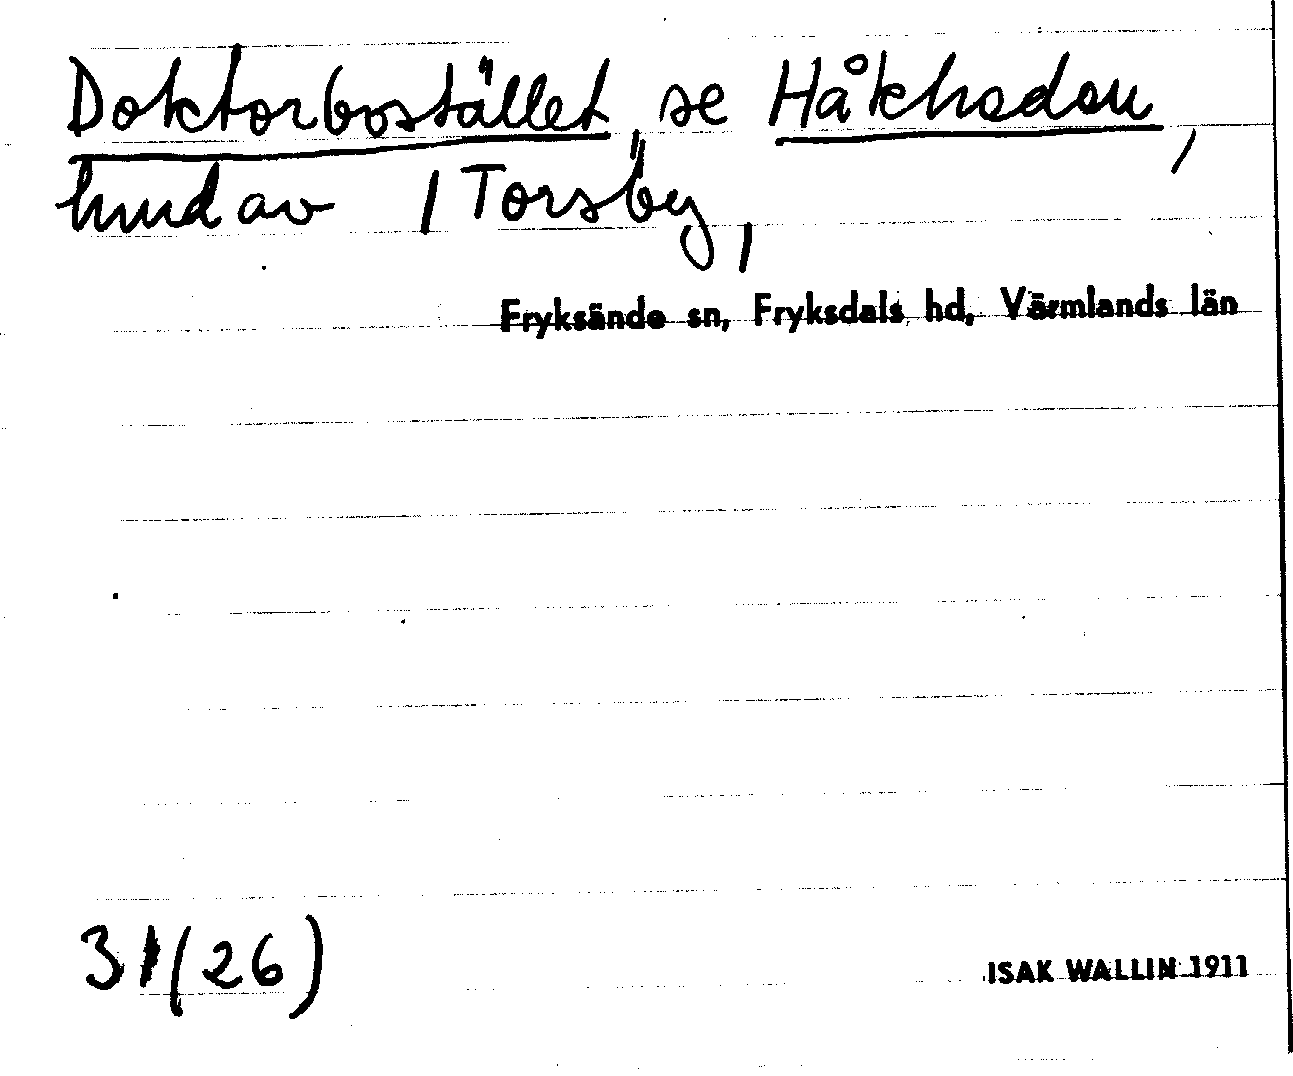 Doktorbostället, se Håkhedan,
hmd av 1 Torsby,
Fryksände sn, Fryksdals hd, Värmlands län
31(26)
ISAK WALLIN 1911